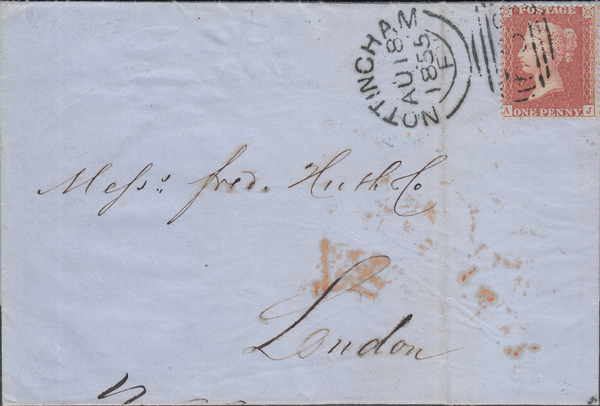 NOTTINGHAM
AU 18
1855
F
POSTAGE
ONE PENNY
A J
Messs. Fred. Huth Co
London